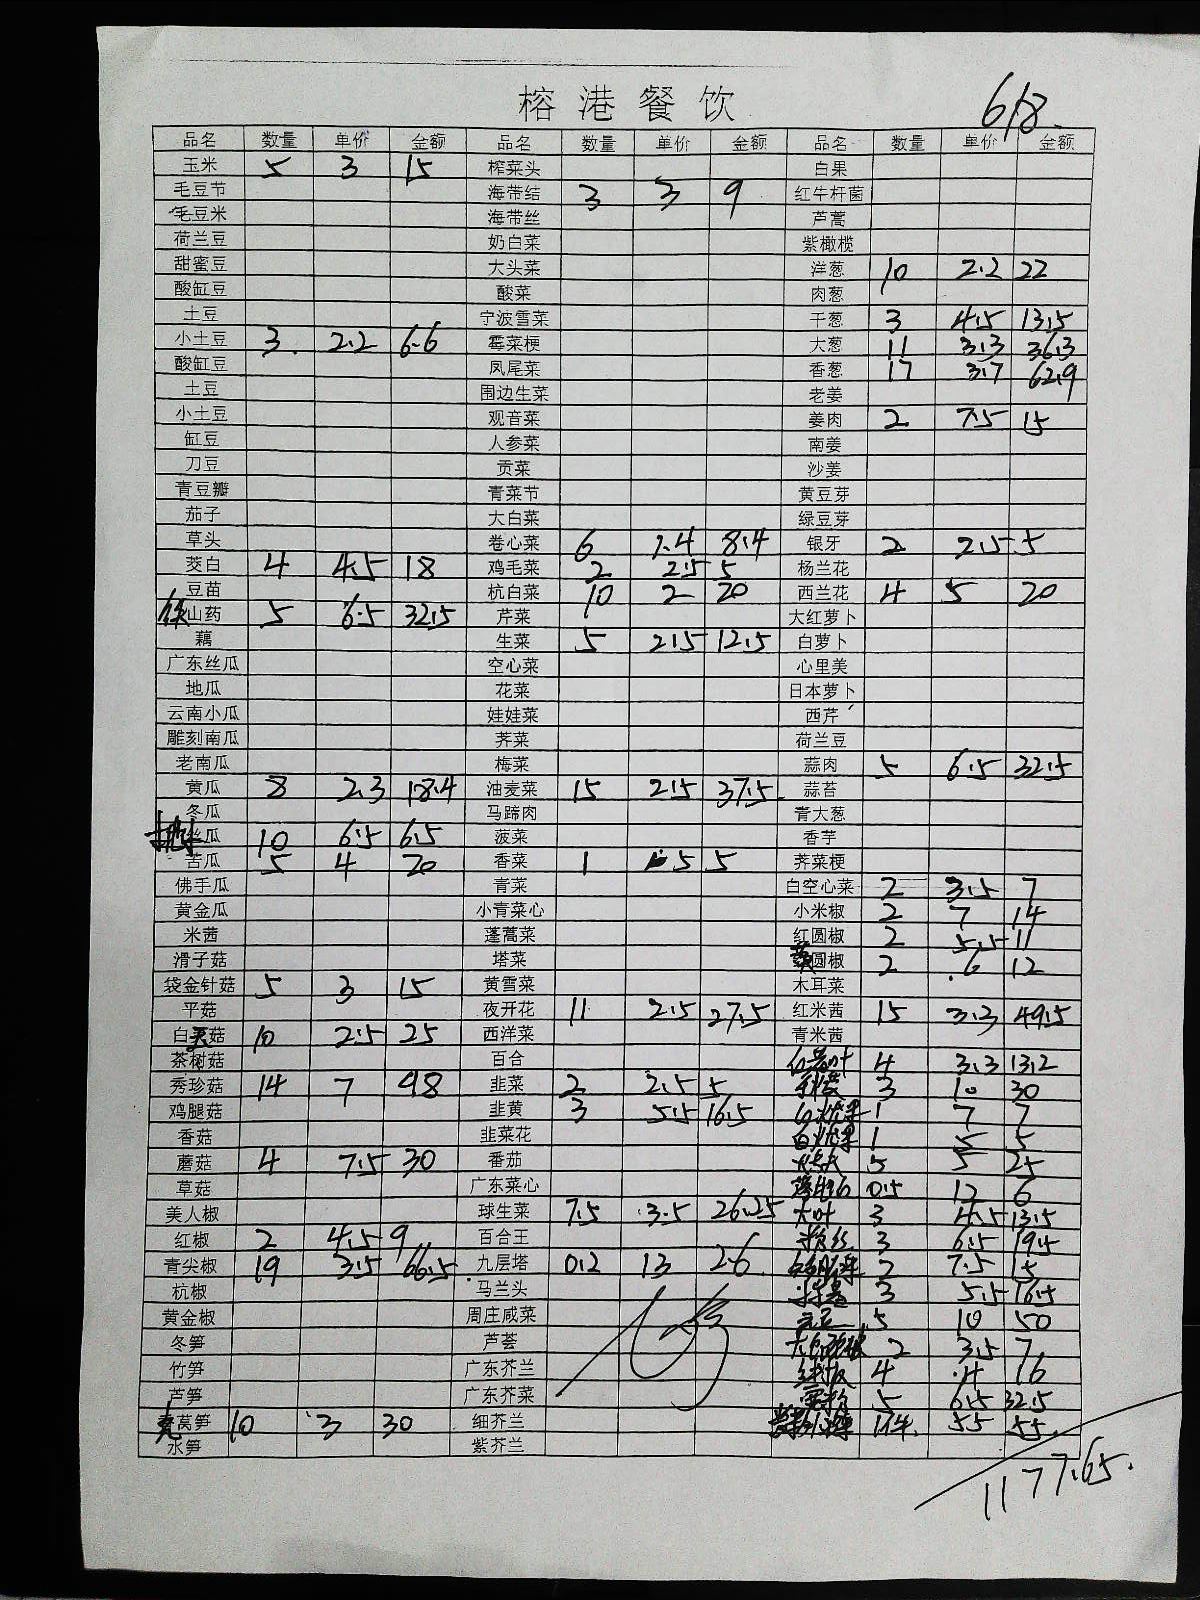 榕港餐饮
6/8.
品名 数量 单价 金额 品名 数量 单价 金额 品名 数量 单价 金额
玉米 5 3 15 榨菜头 白果
毛豆节 海带结 3 3 9 红牛杆菌
毛豆米 海带丝 芦蒿
荷兰豆 奶白菜 紫橄榄
甜蜜豆 大头菜 洋葱 10 2.2 22
酸缸豆 酸菜 肉葱
土豆 宁波雪菜 干葱 3 4.5 13.5
小土豆 3. 2.2 6.6 霉菜梗 大葱 11 3.3 36.3
酸缸豆 凤尾菜 香葱 17 3.7 62.9
土豆 围边生菜 老姜
小土豆 观音菜 姜肉 2 7.5 15
缸豆 人参菜 南姜
刀豆 贡菜 沙姜
青豆瓣 青菜节 黄豆芽
茄子 大白菜 绿豆芽
草头 卷心菜 6 1.4 8.4 银牙 2 2.5 5
茭白 4 4.5 18 鸡毛菜 2 2.5 5 杨兰花
豆苗 杭白菜 10 2 20 西兰花 4 5 20
铁山药 5 6.5 32.5 芹菜 大红萝卜
藕 生菜 5 2.5 12.5 白萝卜
广东丝瓜 空心菜 心里美
地瓜 花菜 日本萝卜
云南小瓜 娃娃菜 西芹
雕刻南瓜 荠菜 荷兰豆
老南瓜 梅菜 蒜肉 5 6.5 32.5
黄瓜 8 2.3 18.4 油麦菜 15 2.5 37.5 蒜苔
冬瓜 马蹄肉 青大葱
丝瓜 10 6.5 65 菠菜 香芋
苦瓜 5 4 20 香菜 1 5 5 荠菜梗
佛手瓜 青菜 白空心菜 2 3.5 7
黄金瓜 小青菜心 小米椒 2 7 14
米茜 蓬蒿菜 红圆椒 2 5.5 11
滑子菇 塔菜 圆椒 2 6 12
袋金针菇 5 3 15 黄雪菜 木耳菜
平菇 夜开花 11 2.5 27.5 红米茜 15 3.3 49.5
白灵菇 10 2.5 25 西洋菜 青米茜
茶树菇 百合 4 3.3 13.2
秀珍菇 14 7 98 韭菜 2 2.5 5 3 10 30
鸡腿菇 韭黄 3 5.5 16.5 1 7 7
香菇 韭菜花 1 5 5
蘑菇 4 7.5 30 番茄 5 5 25
草菇 广东菜心 0.5 12 6
美人椒 球生菜 7.5 3.5 26.25 大叶 3 4.5 13.5
红椒 2 4.5 9 百合王 粉丝 3 6.5 19.5
青尖椒 19 3.5 66.5 九层塔 0.2 13 2.6 2 7.5 15
杭椒 马兰头 3 5.5 16.5
黄金椒 周庄咸菜 5 10 50
冬笋 芦荟 2 3.5 7
竹笋 广东芥兰 4 4 16
芦笋 广东芥菜 5 6.5 32.5
莴笋 10 3 30 细芥兰 1件 55 55.
水笋 紫芥兰
1177.65.